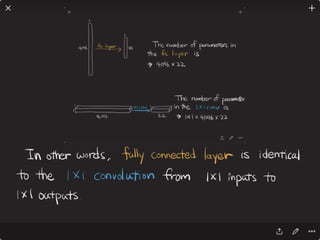 1
1
4096
fc layer
22
The number of parameters in
the fc layer is
→ 4096 × 22
The number of parameter
in the 1×1 conv is
→ 1×1×4096×22
4096
22
In other words, fully connected layer is identical
to the 1×1 convolution from 1×1 inputs to
1×1 outputs